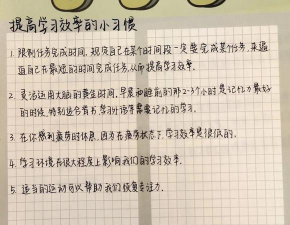 提高学习效率的小习惯
1. 限制任务完成时间，规定自己在某个时间段一定要完成某个任务，来逼
迫自己在最短的时间完成任务，从而提高学习效率。
2. 灵活运用大脑的黄金时间，早晨和睡前的那2-3个小时是记忆力最好
的时候，特别适合背书学外语等需要记忆的学习。
3. 在你感到疲劳时休息，因为在疲劳状态下，学习效率是很低的。
4. 学习环境在很大程度上影响我们的学习效率。
5. 适当的运动可以帮助我们恢复专注力。